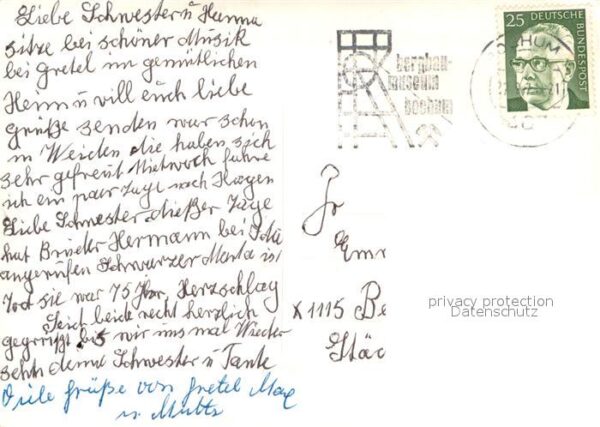 Liebe Schwester u Hanna
sitze bei schöner Musik
bei Gretel im gemütlichen
Heim u will euch liebe
grüße senden war schon
in Weiden die haben sich
sehr gefreut Mietwoch fahre
ich ein paar Tage nach Hagen
Liebe Schwester dießer Tage
hat Bruder Hermann bei
angerufen Schwarzer Marta ist
Tod sie war 75 Jhr. Herzschlag
Seid beide recht herzlich
gegrüßt bis wir uns mal Wieder
sehn deine Schwester u Tante
Viele Grüße von Gretel
u. Mutti
25 DEUTSCHE BUNDESPOST
BOCHUM
bergbau-
museum
bochum
Fr
X 1115 Be
privacy protection
Datenschutz